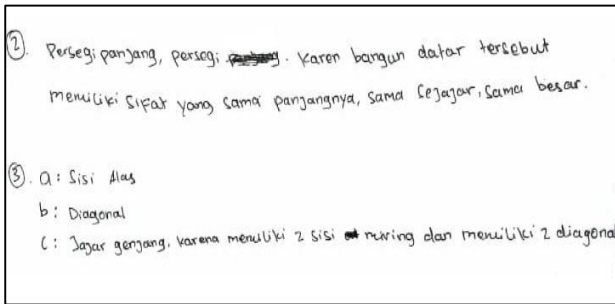 2. Persegi panjang, persegi. Karen bangun datar tersebut
memiliki sifat yang sama panjangnya, sama sejajar, sama besar.
3. a: Sisi Alas
b: Diagonal
c: Jajar genjang, karena memiliki 2 sisi miring dan memiliki 2 diagonal